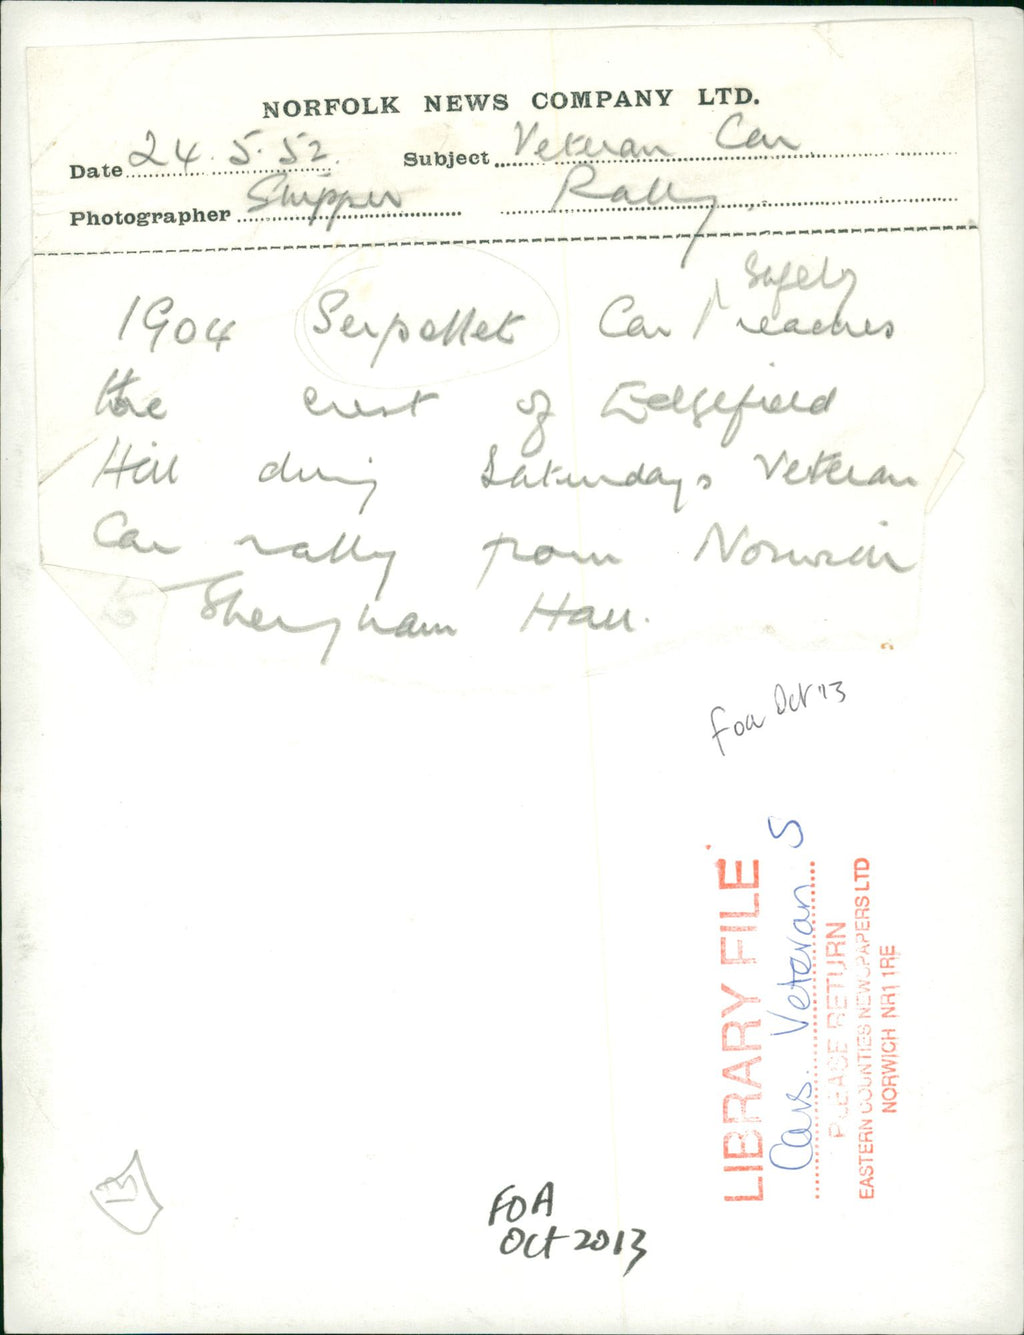 NORFOLK NEWS COMPANY LTD.
Date 24.5.52. Subject Veteran Car
Photographer Skipper Rally
safely
1904 Serpollet Car reaches
the crest of Edgefield
Hill during Saturdays Veteran
Car rally from Norwich
to Sheringham Hall.
foa Oct '13
LIBRARY FILE
Cars. Veteran S
PLEASE RETURN
EASTERN COUNTIES NEWSPAPERS LTD
NORWICH NR1 1RE
13
FOA
Oct 2013